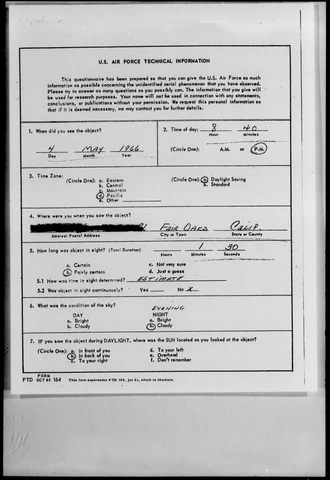 U.S. AIR FORCE TECHNICAL INFORMATION
This questionnaire has been prepared so that you can give the U.S. Air Force as much
information as possible concerning the unidentified aerial phenomenon that you have observed.
Please try to answer as many questions as you possibly can. The information that you give will
be used for research purposes. Your name will not be used in connection with any statements,
conclusions, or publications without your permission. We request this personal information so
that if it is deemed necessary, we may contact you for further details.
1. When did you see the object?
4 MAY 1966
Day Month Year
2. Time of day: 8 40
Hour Minutes
(Circle One): A.M. or P.M.
3. Time Zone:
(Circle One): a. Eastern
b. Central
c. Mountain
d. Pacific
e. Other
(Circle One): a. Daylight Saving
b. Standard
4. Where were you when you saw the object?
FAIR OAKS CALIF.
Nearest Postal Address City or Town State or County
5. How long was object in sight? (Total Duration) 1 30
Hours Minutes Seconds
a. Certain c. Not very sure
b. Fairly certain d. Just a guess
5.1 How was time in sight determined? ESTIMATE
5.2 Was object in sight continuously? Yes No X
6. What was the condition of the sky?
EVENING
DAY NIGHT
a. Bright a. Bright
b. Cloudy b. Cloudy
7. IF you saw the object during DAYLIGHT, where was the SUN located as you looked at the object?
(Circle One): a. In front of you d. To your left
b. In back of you e. Overhead
c. To your right f. Don't remember
FORM
FTD OCT 62 164 This form supersedes FTD 164, Jul 61, which is obsolete.